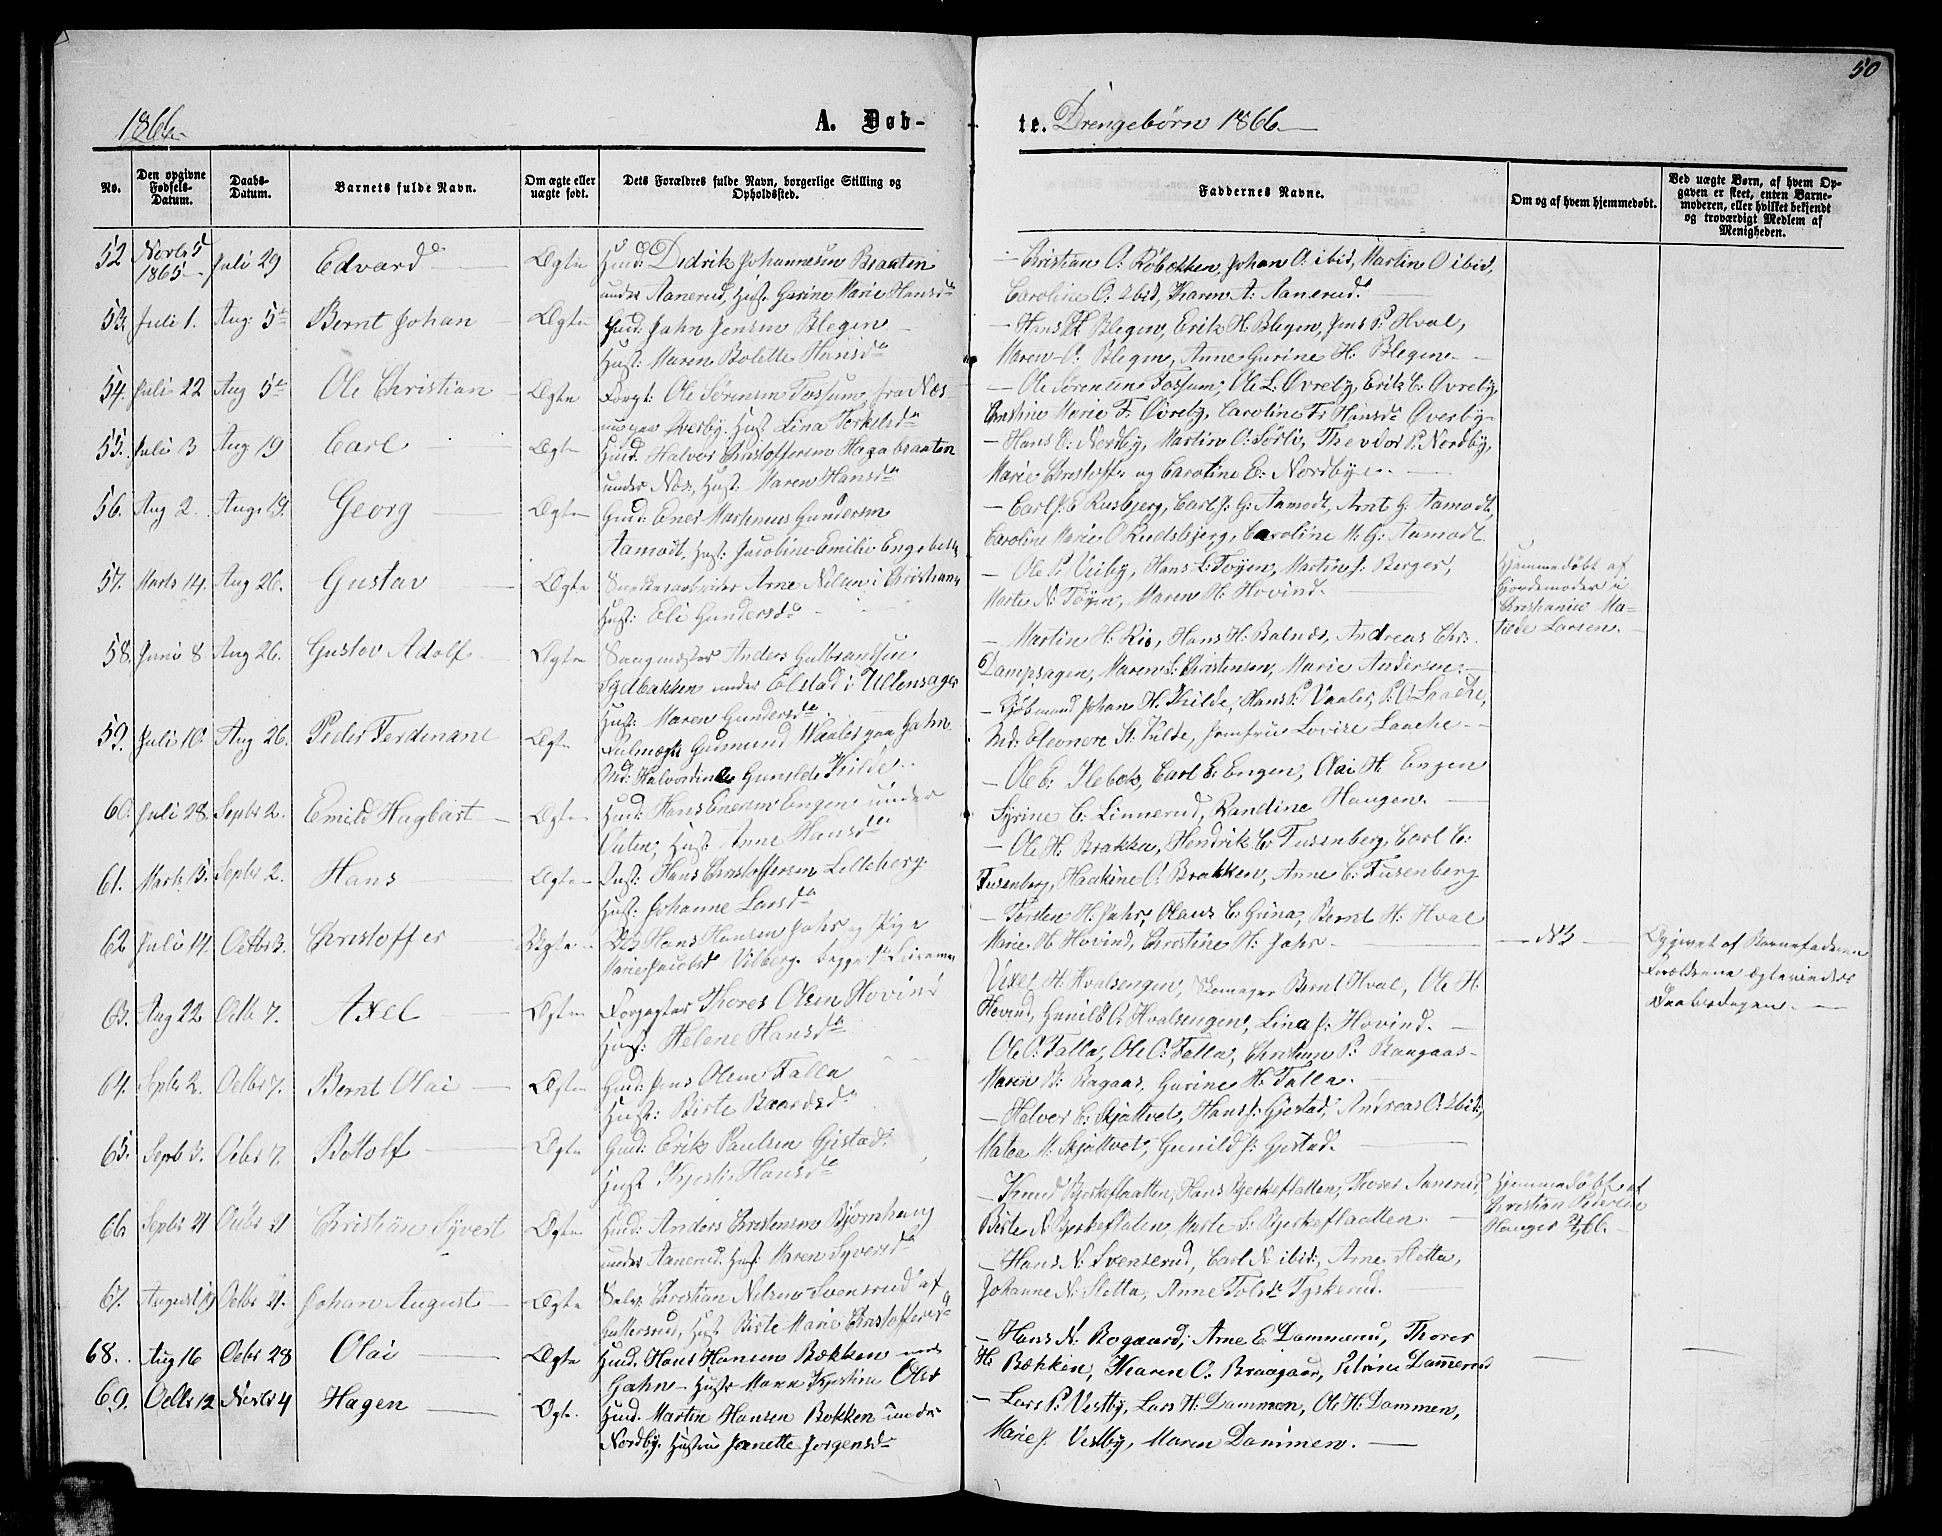 50
1866.
A. Døb-
te. Drengebørn 1866.
No.
Den opgivne Fødsels-Datum.
Daabs-Datum.
Barnets fulde Navn.
Om ægte eller uægte født.
Dets Forældres fulde Navn, borgerlige Stilling og Opholdssted.
Faddernes Navne.
Om og af hvem hjemmedøbt.
Ved uægte Børn, af hvem Opgaven er skeet, enten Barnemoderen, eller hvilket bekjendt og troværdigt Medlem af Menigheden.
52 Novbr 5 1865 Juli 29 Edvard Ægte Huusmd: Didrik Johannesen Braaten
under Aanerud, Hust: Gurine Marie Hansd.
Christian O: Røbækken, Johan O: ibid, Martin O ibid,
Caroline O: Ibid, Karen A: Aanerud.
53 Juli 1. Aug. 5te Bernt Johan Ægte Gud: John Jensen Blegen
Hust: Maren Bolette Hansd.
Hans H Blegen, Erik H. Blegen, Jens P. Hval,
Maren O. Blegen, Anne Gurine H. Blegen.
54. Juli 22 Aug 5te Ole Christian Ægte Forpgt: Ole Sørensen Fossum, fra Næs
Øverby. Hust Lina Torkelsd.
Ole Sørensen Fossum, Ole L. Øvreby, Erik C. Øvreby,
Marie F. Øvreby, Caroline Fr Hansd. Øverby
55. Juli 3 Aug 19 Carl Ægte Huusmd. Halvor Christoffersen Hagabraaten
under Næs, Hust: Maren Hansd.
Hans C: Nordby, Martin O: Sørli, Theodor P. Nordby,
Marie Christoff. og Caroline E. Nordbye.
56. Aug 2. Aug. 19. Georg Ægte Gud: Ener Marthinus Gundersen
Aamodt, Hust: Jacobine Emilie Engebrets
Carl J. E Rusbjerg, Carl J. G. Aamodt, Arnt G. Aamodt,
Caroline Marie O Rudsbjerg, Caroline M. G. Aamodt.
57. Marts 14. Aug 26. Gustav Ægte Arne Nilsen i Christiania
Hust: Eli Gundersd.
Ole P. Veiby, Hans L: Tøjen, Martin J. Berger,
Marte N: Tøjen, Maren H. Hovind.
Hjemmedøbt af
Gjordemoder i
Christiania Ma-
tilde Larsen.
58. Juni 8 Aug 26. Gustav Adolf Ægte Saugmester Anders Gulbrandsen
under Elstad i Ullensager
Hust: Maren Gundersd.
Martin H. Rio, Hans H. Balnæs, Andreas Chr.
Dampsagen, Maren L. Christensen, Marie Andersen.
59. Juli 10. Aug 26. Peder Ferdinand Ægte Fuldmægt: Gudmund Waaler paa Gahn
Md: Halvordine Gunilde Kilde.
Kjøbmand Johan H. Kilde, Hans P. Vaaler, P. O. Laache,
Md: Eleonore St. Kilde, Jomfru Lovise Laache
60. Juli 28. Septbr 2. Emil Hagbart Ægte Huusmd: Hans Enersen Engen under
Outen, Hust Anne Hansd.
Ole E: Ilebæk, Carl E. Engen, Olai H. Engen
Syrine C. Linnerud, Randine Haugen.
61. Marts 13. Septbr 2. Hans Ægte Inst: Hans Christoffersen Lilleberg.
Hust: Johanne Larsd.
Ole H. Brækken, Hendrik C. Fusenberg, Carl C:
Fusenberg, Haakine O: Brækken, Anne C. Fusenberg
62 Juli 14. Octbr 3. Christoffer Hans Hansen Jahr og Pige
Marie Jacobsd Vilberg.
Torsten H. Jahr, Olaus C. Grina, Bernt H. Hval
Marie H. Hovind, Christine H. Jahr.
NB
Opgivet af Barnefaderen
Forældrene ægteviedes
Daabsdagen.
63. Aug 22 Octb 7. Axel Ægte Forpagter Thores Olsen Hovind
Hust: Helene Hansd.
Axel H. Hvalsengen, Skomager Bernt Hval, Ole H.
Hovind, Gunild O. Hvalsengen, Lina J. Hovind.
64. Septbr 2. Octbr 7. Bernt Olai Ægte Gud: Jens Olsen Falla
Hust: Birte Baardsd.
Ole O. Falla, Ole O: Falla, Christian P. Raagaas
Maren B. Ragaas, Gurine H. Falla.
65. Septb 3. Octbr 7. Botolf Ægte Gud: Erik Paulsen Gjestad
Hust Kjersti Hansd.
Halvor C. Skjættvet, Hans J. Gjestad, Andreas O: Ibid,
Matea M. Skjættvet, Gunild J. Gjestad.
66 Septbr 21 Octbr 21 Christian Syvert Ægte Huusmd: Anders Christensen Bjørnhaug
under Aanerud. Hust Maren Syversd.
Knud Bjerkeflaatten, Hans Bjerkeflatten, Thorer Aanerud,
Birte N. Bjerkeflaten, Marte S. Bjerkeflaatten.
Hjemmedøbt af
Christian Pedersen
Hauger
67. August 19 Octbr 21. Johan August Ægte Selv: Christian Nilsen Svenserud af
Guttersrud, Hust Birte Marie Christoffersd.
Hans N. Svenserud, Carl N. ibid, Arne Sletta,
Johanne N. Sletta, Anne Tolsd. Tyskerud.
68. Aug 16 Octbr 28 Olai Ægte Huusmd. Hans Hansen Bækken under
Gahn Hustr Maren Kjerstine Olsd
Hans N. Bogaard, Arne E. Dammerud, Thorer
H: Bækken, Karen O. Braagaar, Petrine Dammerud
69. Octbr 12 Novbr 4 Hagen Ægte. Huusmd. Martin Hansen Bekken under
Nordby. Hustru Janette Jørgensd.
Lars P. Vestby, Lars H. Dammen, Ole H. Dammen,
Marie J. Vestby, Maren Dammen.